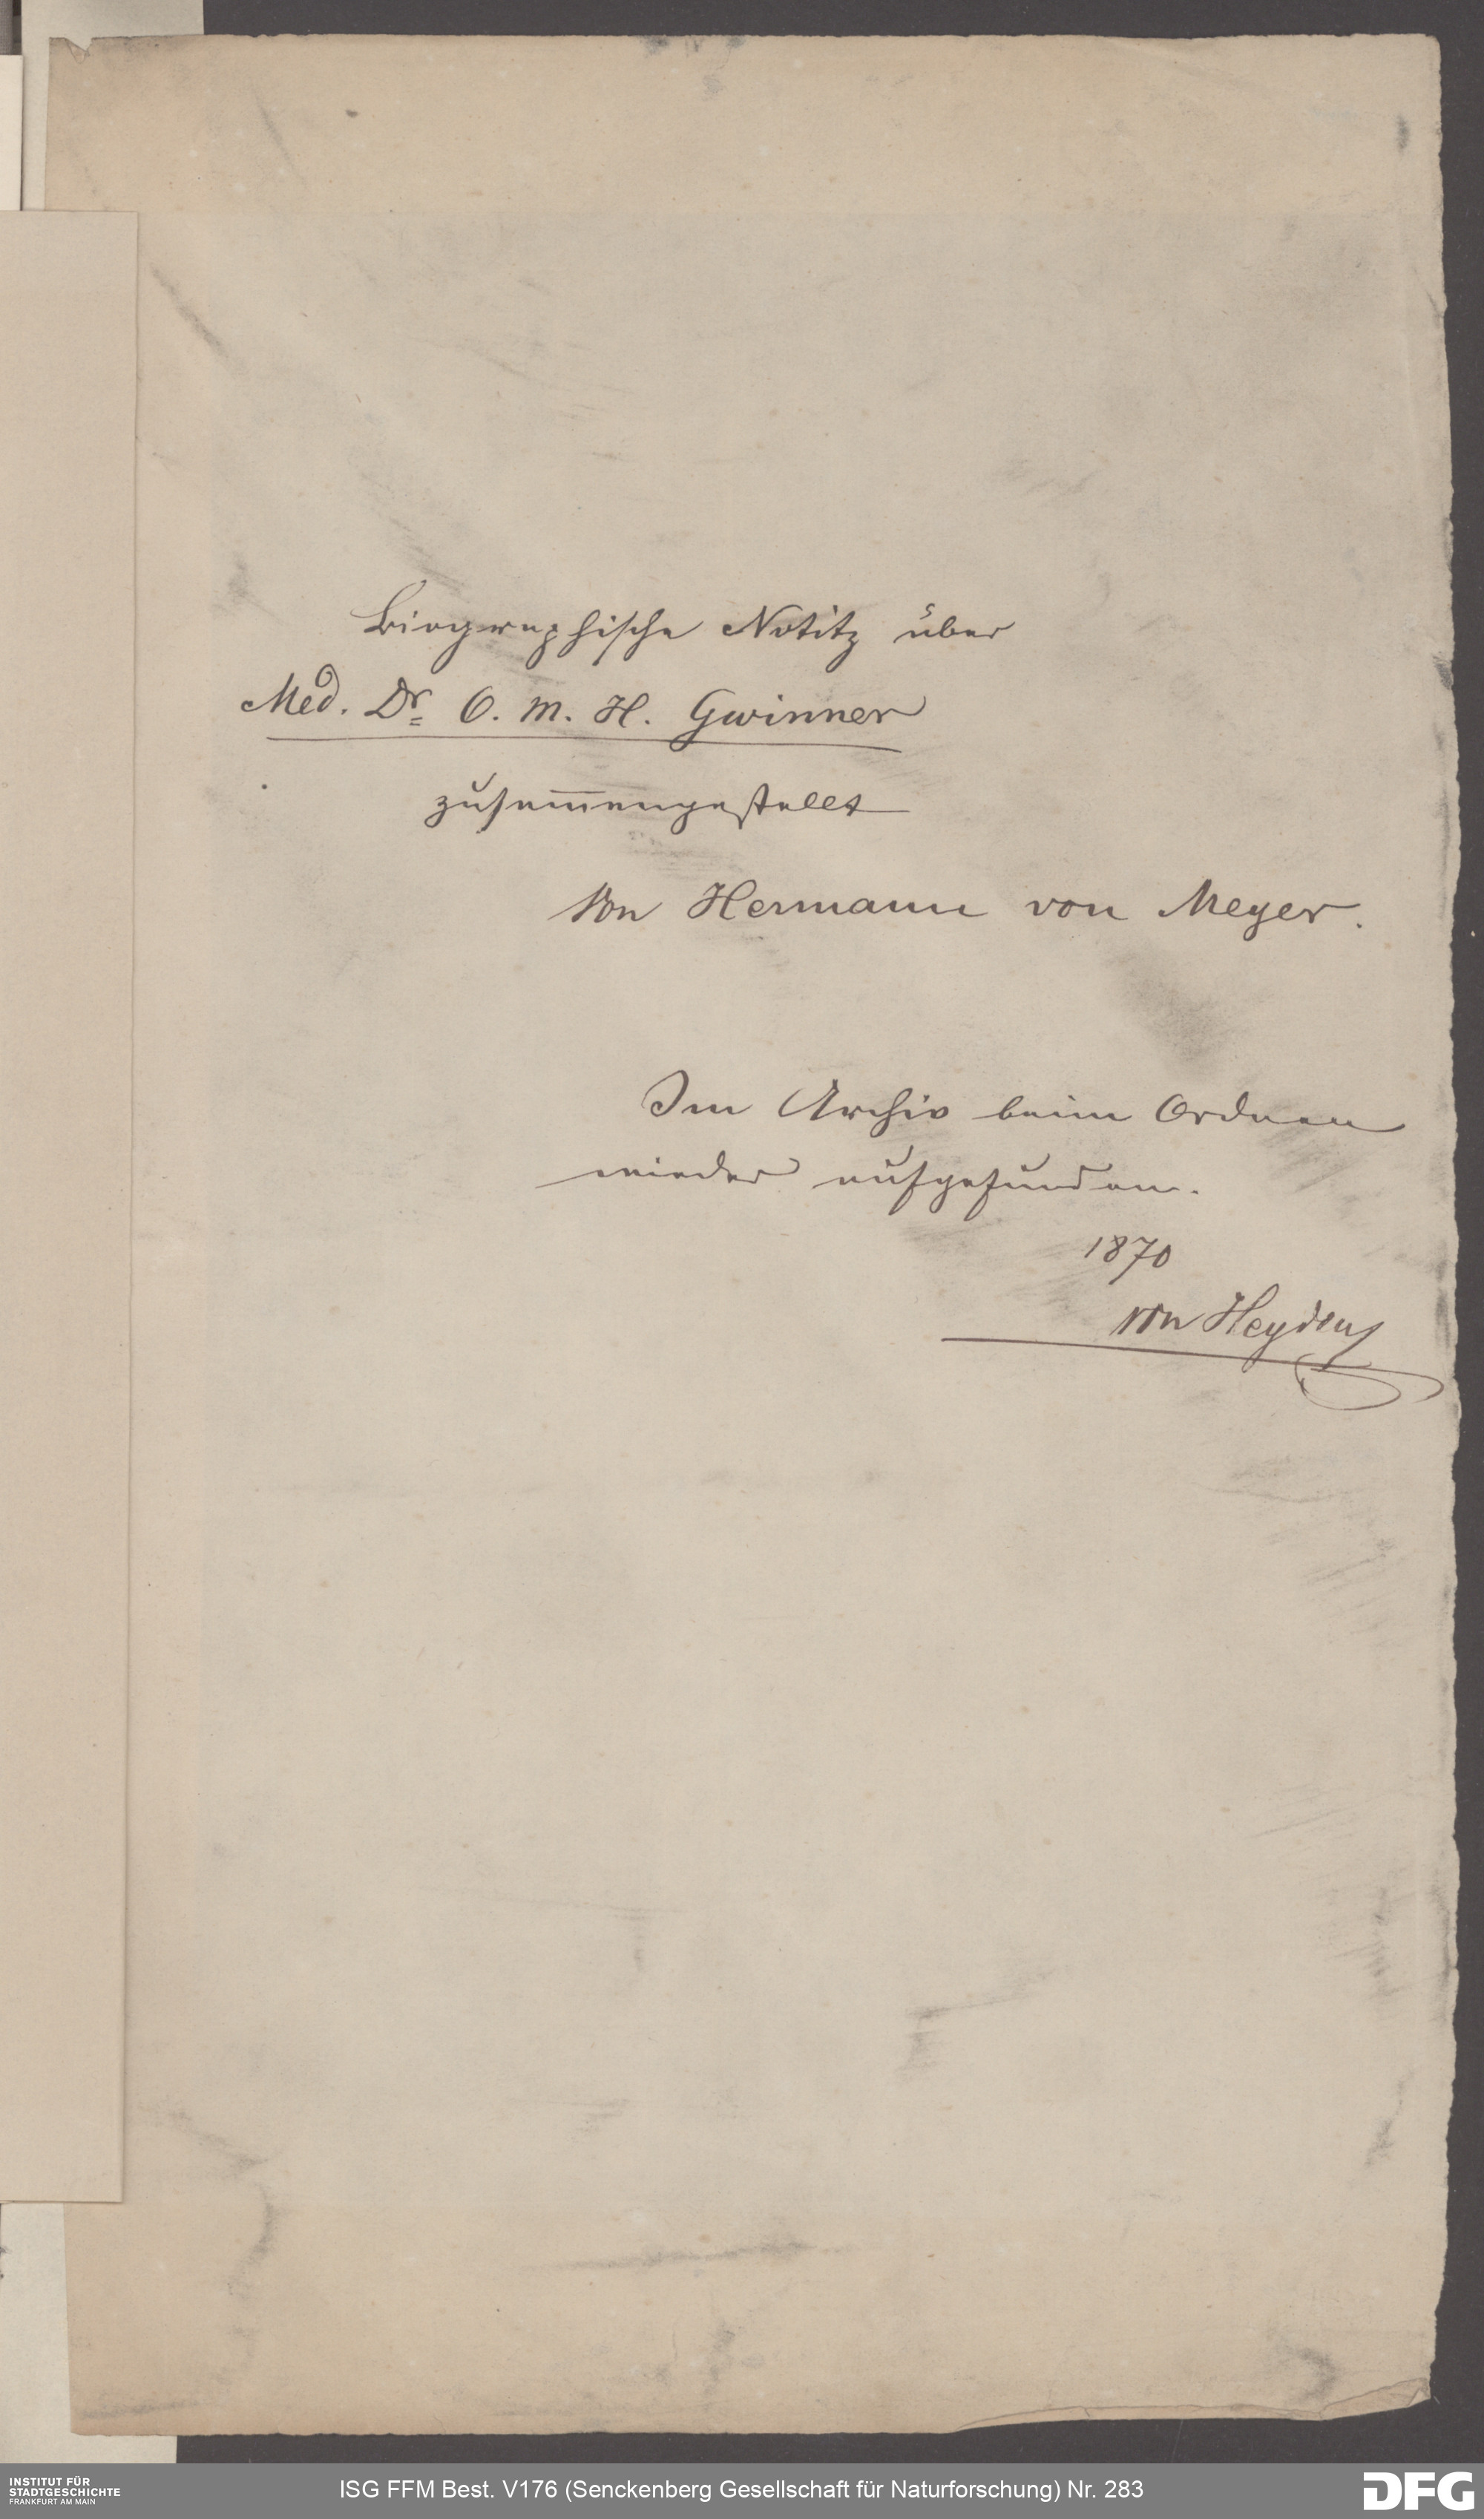 Biographische Notitz über
Med. Dr. O. M. H. Gwinner
zusam̅engestellt
Von Hermann von Meyer.
Im Archiv beim Ordnen
wieder aufgefunden.
1870
von Heyden
INSTITUT FÜR
STADTGESCHICHTE
FRANKFURT AM MAIN
ISG FFM Best. V176 (Senckenberg Gesellschaft für Naturforschung) Nr. 283
DFG